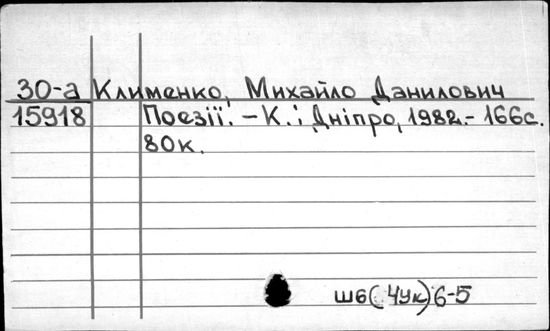 30-а Клименко, Михайло Данилович
15918 Поезії. – К.: Дніпро, 1982. – 166с.
80к.
Ш6(4Ук)6-5